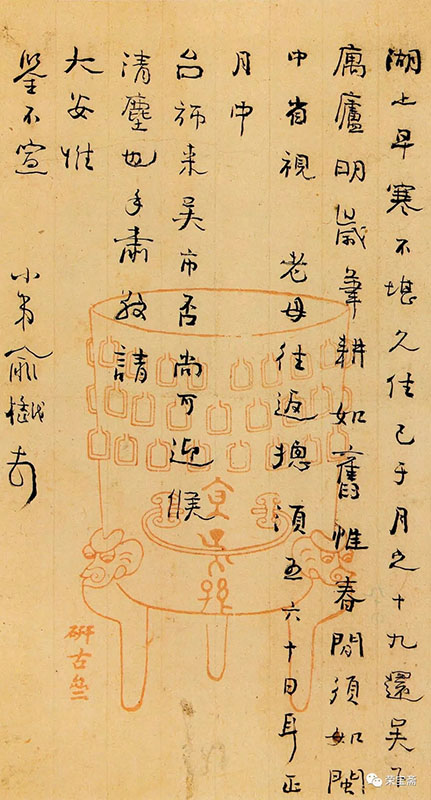 湖上早寒不堪久住已于月之十九還吳下
寓廬明歲筆耕如舊惟春間須如閩
中省視 老母往返總須五六十日耳正
月中
台旆来吳市否尚可迎候
清塵也手肅敬請
大安惟
鑒不宣
小弟俞樾
研古
荣宝斋